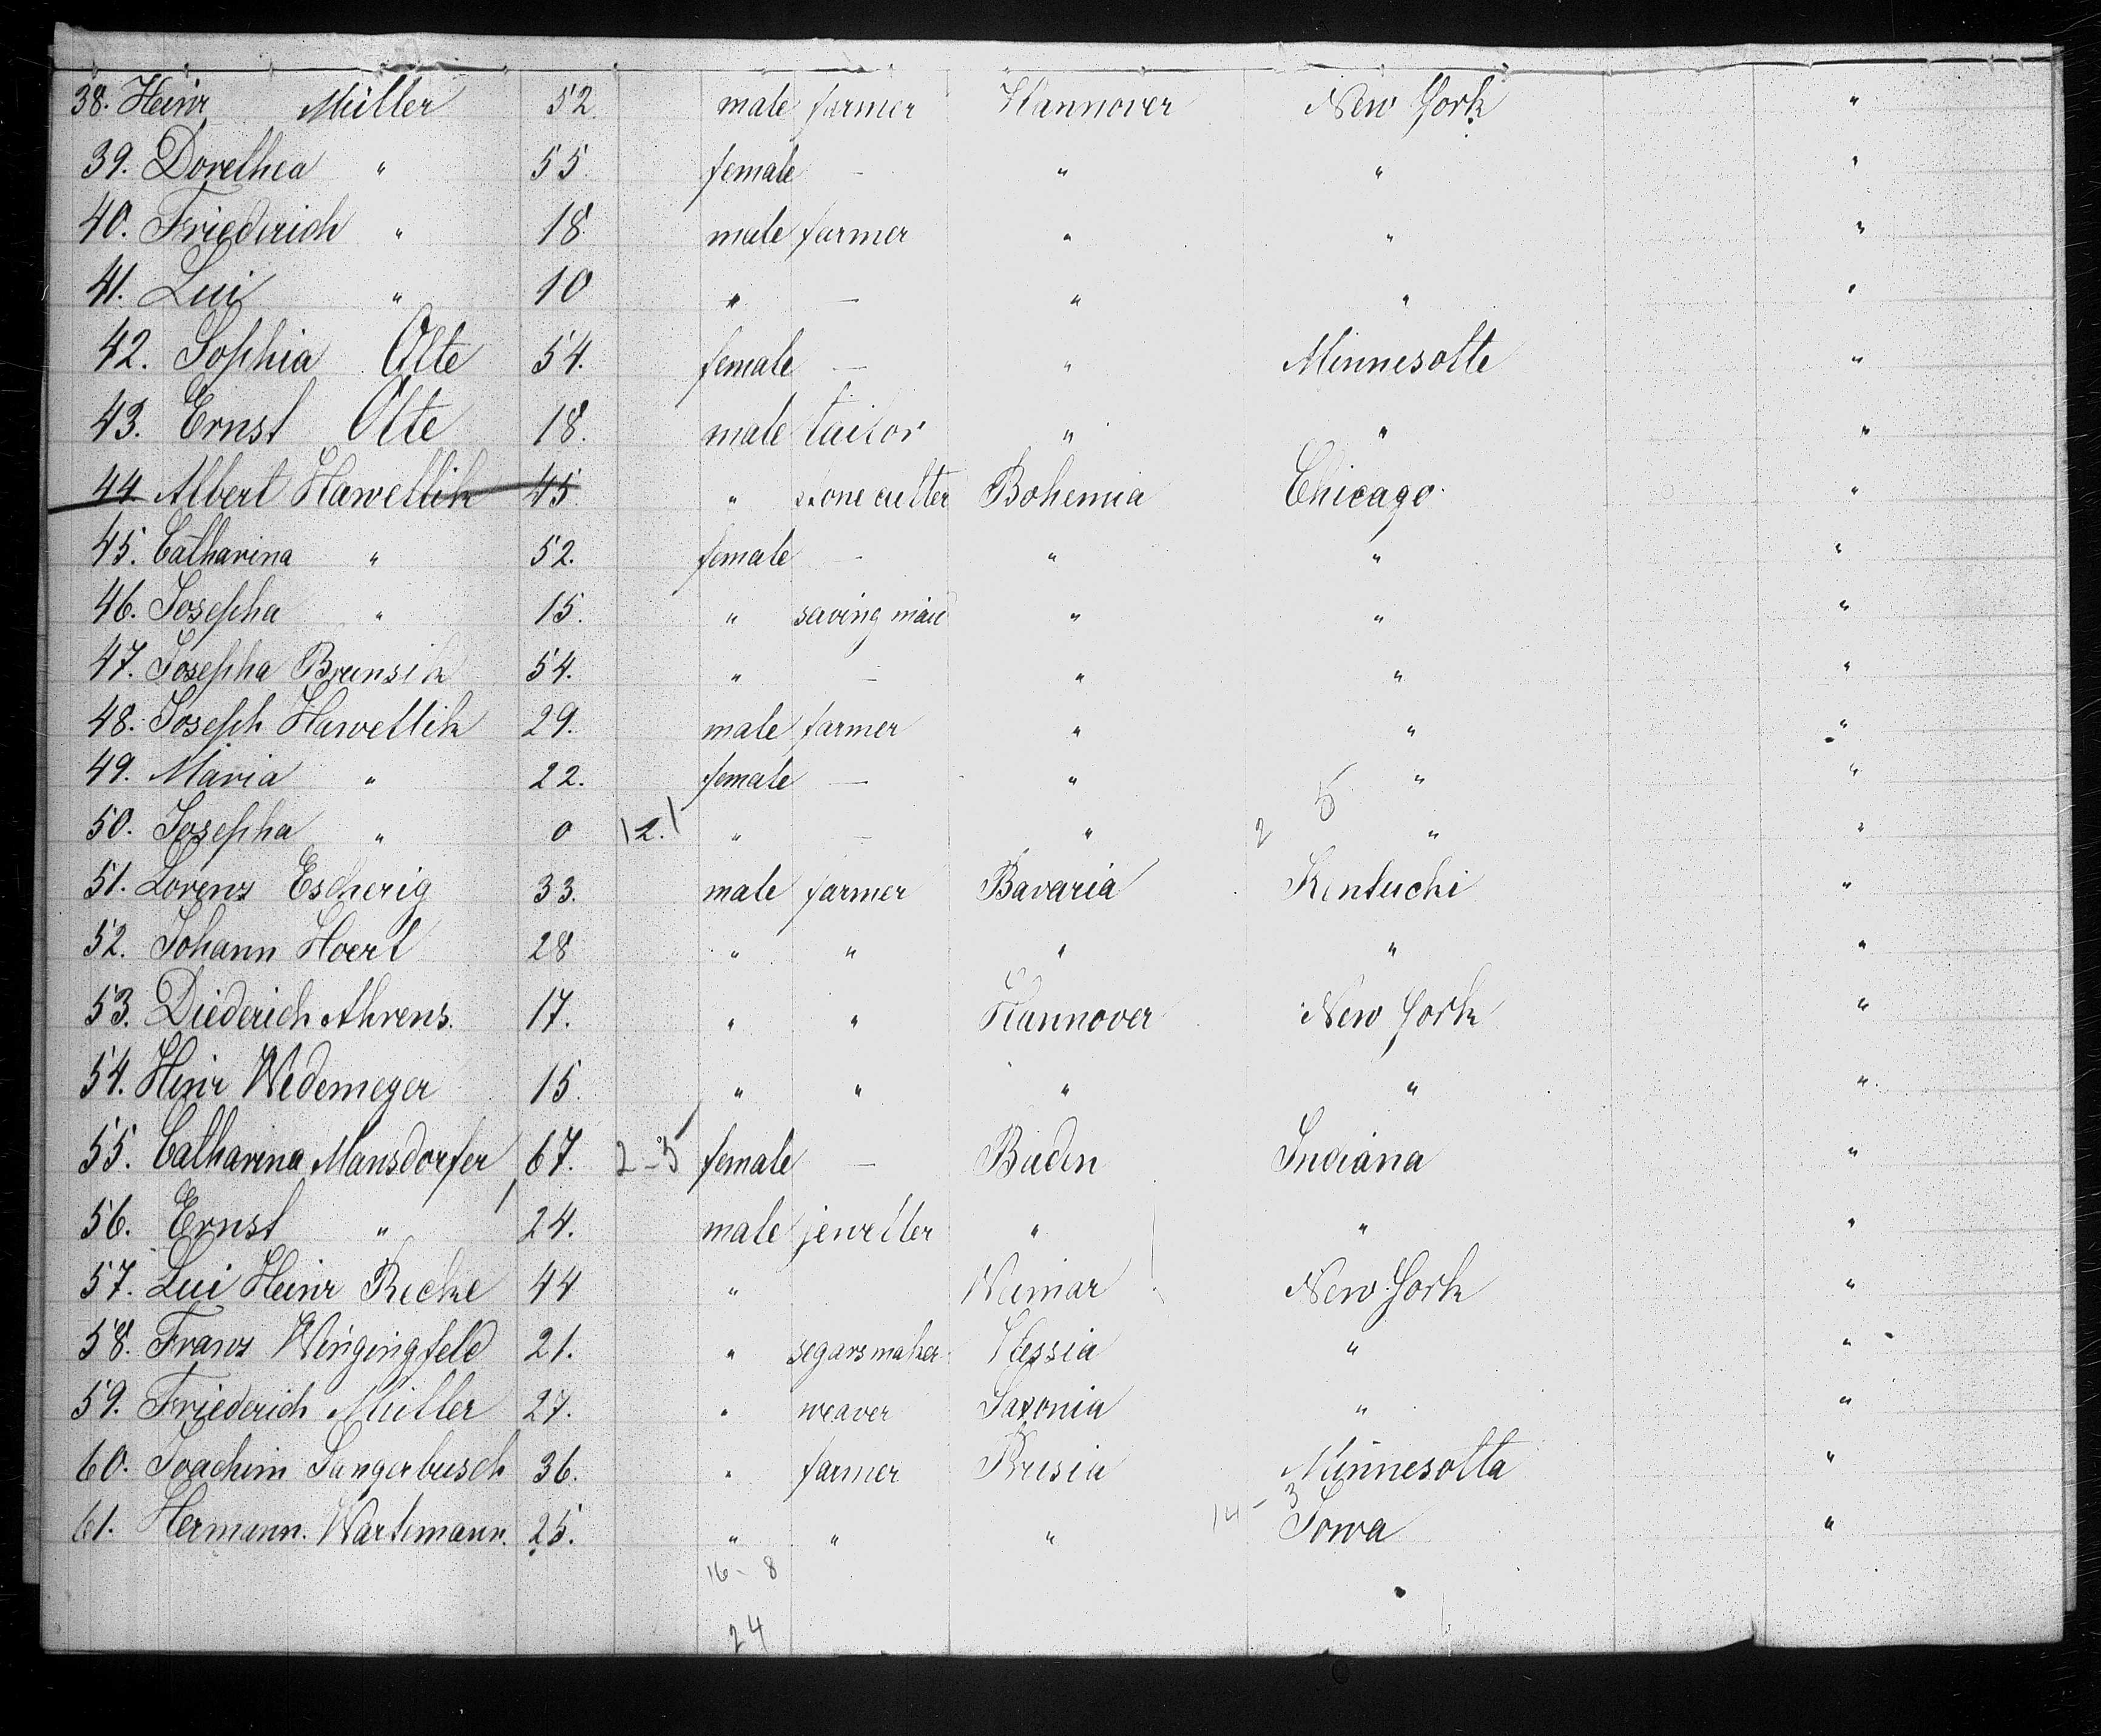 38. Heinr Müller 52. male farmer Hannover New York "
39. Dorethea " 55. female - " " "
40. Friederich " 18. male farmer " " "
41. Lui " 10 " - " " "
42. Sophia Otte 54. female - " Minnesotte "
43. Ernst Otte 18. male tailor " " "
44. Albert Hawellik 45. " stone cutter Bohemia Chicago "
45. Catharina " 52. female - " " "
46. Josepha " 15. " serving maid " " "
47. Josepha Brunsik 54. " - " " "
48. Joseph Hawellik 29. male farmer " " "
49. Maria " 22. female - " " "
5
50. Josepha " 0 12. " - " 2 " "
51. Lorenz Escherig 33. male farmer Bavaria Kentucki "
52. Johann Hoerl 28 " " " " "
53. Diederich Ahrens. 17. " " Hannover New York "
54. Heinr Wedemeyer 15. " " " " "
55. Catharina Mansdorfer 67. 2-5 female - Baden Indiana "
56. Ernst " 24. male jeweller " " "
57. Lui Heinr Ricke 44 " Weimar New York "
58. Franz Wingingfeld 21. " segarsmaker Hessia " "
59. Friederich Müller 27. " weaver Saxonia " "
60. Joachim Sangerbusch 36. " farmer Prusia Minnesotta "
61. Hermann. Wartemann. 25. " " " 14-3 Iowa "
16-8
24